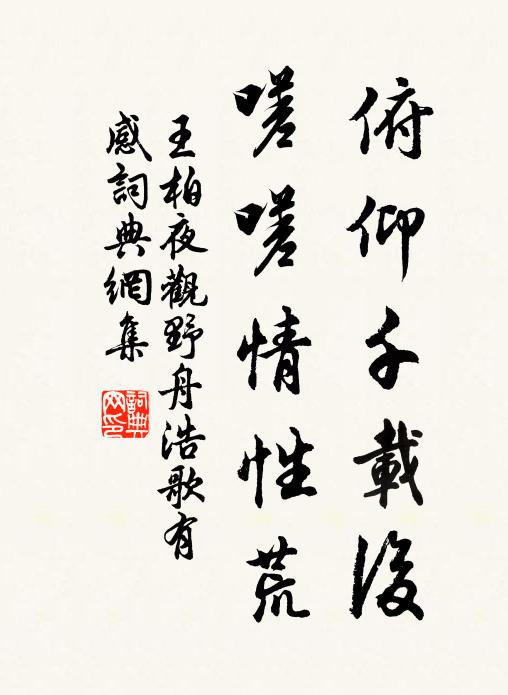 俯仰千載後
嗟嗟情性荒
王柏夜觀野舟浩歌有
感詞典網集
詞典
网印